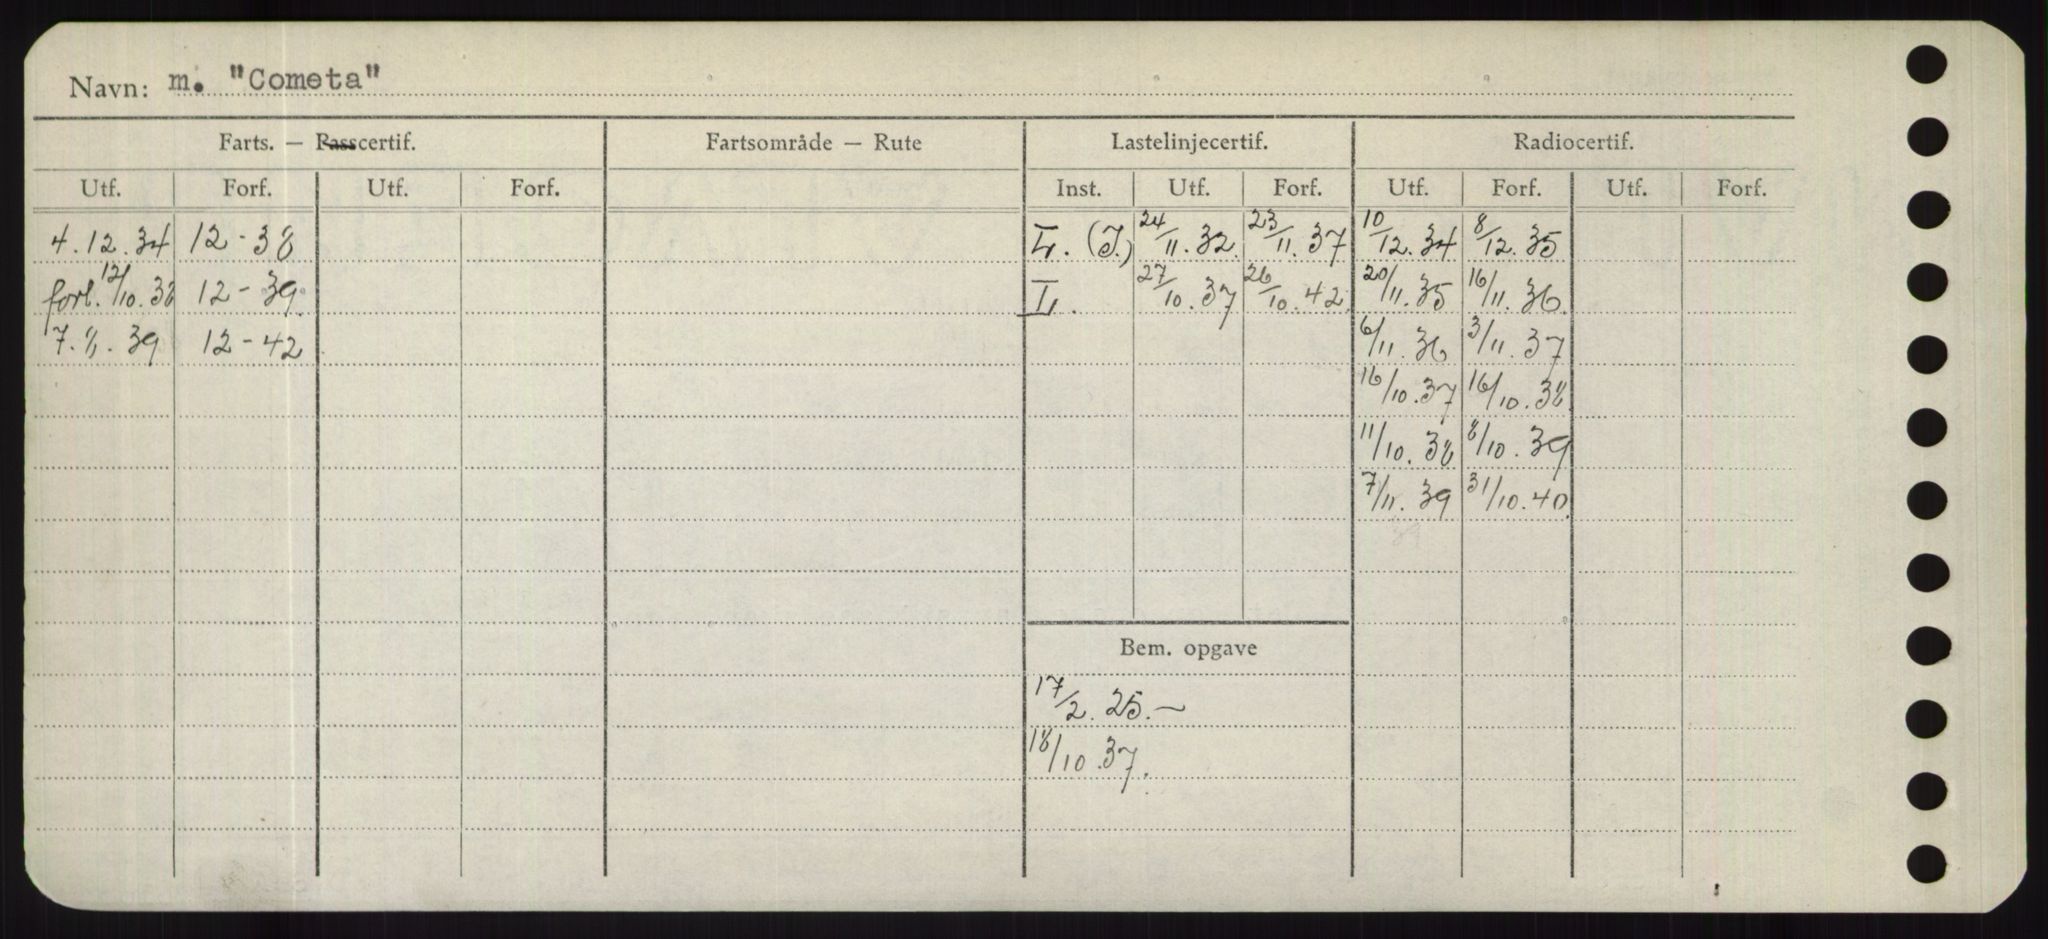 Navn: m. "Cometa"
Farts. — Passcertif. Fartsområde — Rute Lastelinjecertif. Radiocertif.
Utf. Forf. Utf. Forf. Inst. Utf. Forf. Utf. Forf. Utf. Forf.
4.12.34 12-38 L. (I.) 24/11.32. 23/11.37 10/12.34 8/12.35
forl. 12/10.38 12-39. L. 27/10.37 26/10.42 20/11.35 16/11.36.
7. 39 12-42 6/11.36 3/11.37
16/10.37 16/10.38.
11/10.38 8/10.39
7/11.39 31/10.40.
Bem. opgave
17/2. 25.—
18/10.37.